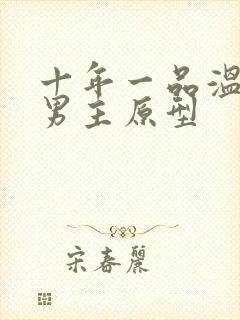 十年一品温
男主原型
宋春丽